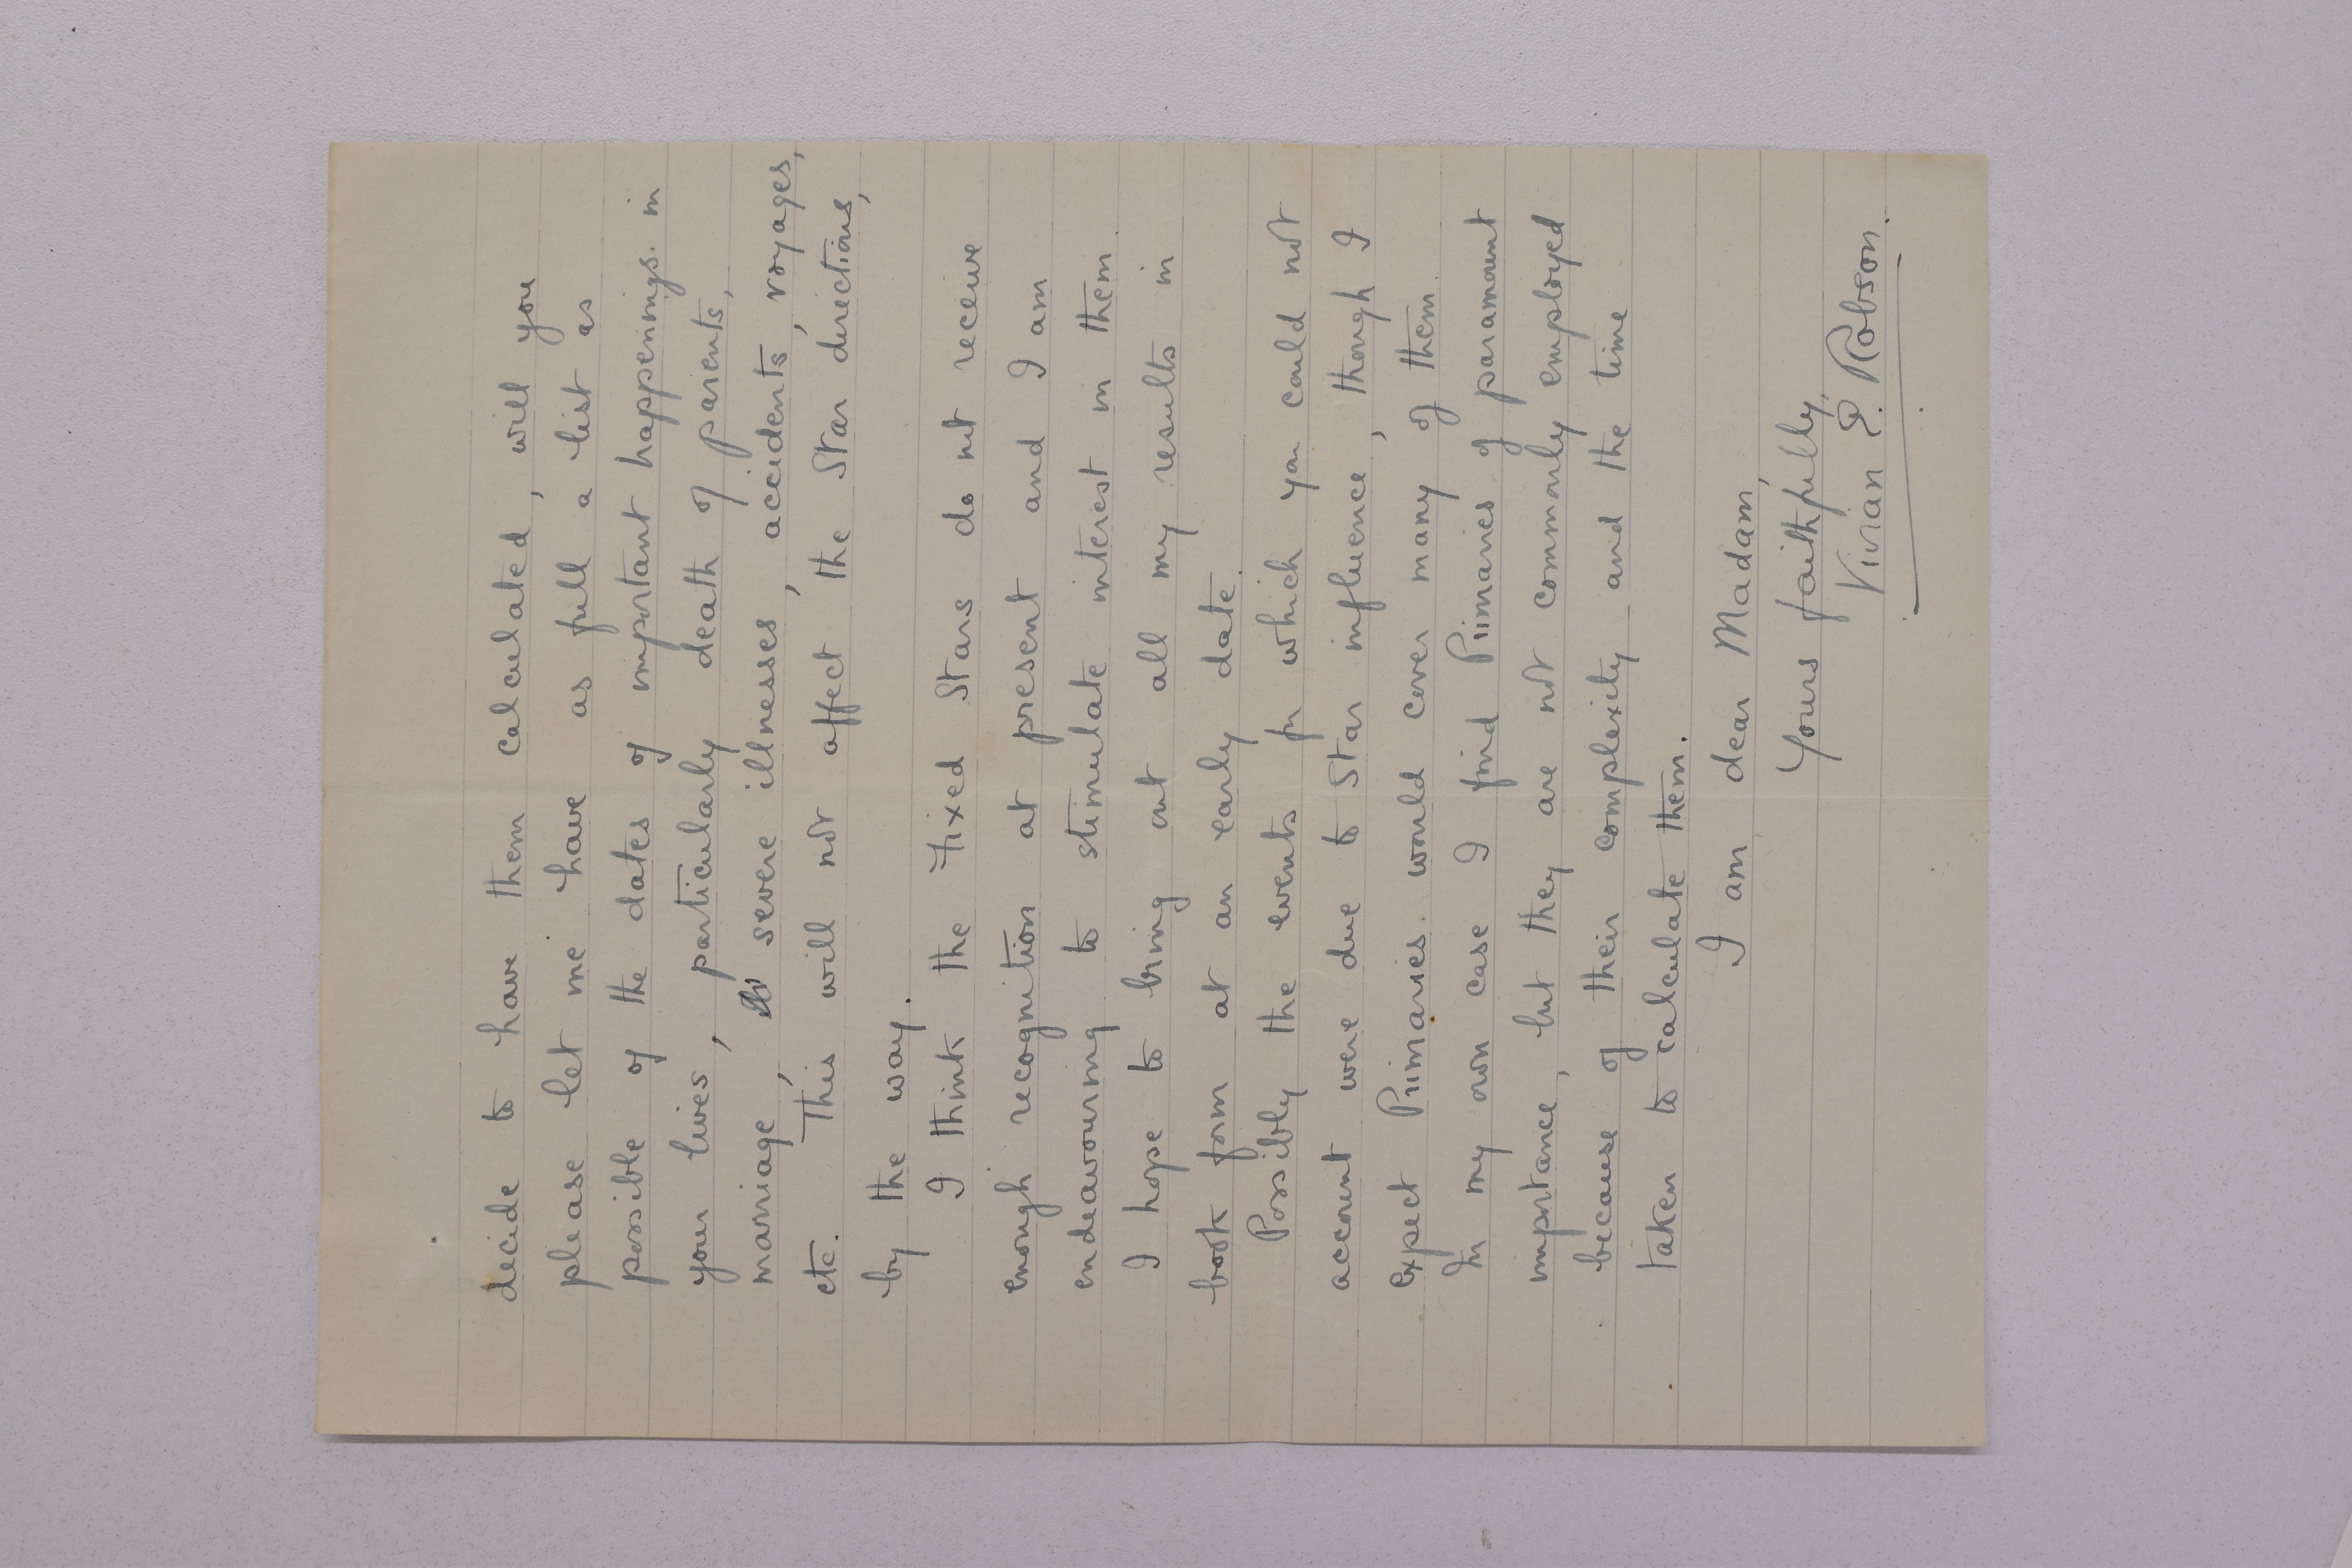 decide to have them calculated, will you
please let me have as full a list as
possible of the dates of important happenings in
your lives, particularly death of parents,
marriage, severe illnesses, accidents, voyages,
etc. This will not affect the Star directions,
by the way.
I think the Fixed Stars do not receive
enough recognition at present and I am
endeavouring to stimulate interest in them.
I hope to bring out all my results in
book form at an early date.
Possibly the events for which you could not
account were due to Star influence, though I
expect Primaries would cover many of them.
In my own case I find Primaries of paramount
importance, but they are not commonly employed
because of their complexity and the time
taken to calculate them.
I am dear Madam,
Yours faithfully,
Vivian E. Robson.